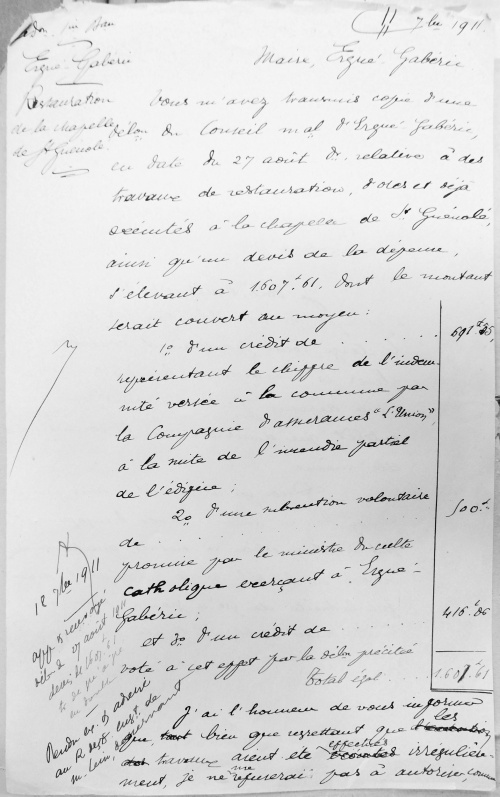 11 7bre 1911
Ergué-Gabéric
Maire, Ergué-Gabéric
Restauration
de la chapelle
de St Guénolé
Vous m'avez transmis copie d'une
délon du Conseil mal d'Ergué-Gabéric,
en date du 27 août dr. relative à des
travaux de restauration, d'ores et déjà
exécutés à la chapelle de St Guénolé,
ainsi qu'un devis de la dépense,
s'élevant à 1.607f.61. dont le montant
serait couvert au moyen :
1o d'un crédit de . . . . . . 691f.55
représentant le chiffre de l'indem-
nité versée à la commune par
la Compagnie d'assurances "L'Union",
à la suite de l'incendie partiel
de l'édifice ;
2o d'une subvention volontaire
de . . . . . . 500f.
promise par le ministre du culte
catholique exerçant à Ergué-
Gabéric ;
et 3o d'un crédit de . . . . 416f.06
voté à cet effet par la délon précitée
Total égal . . . 1.607f.61
J'ai l'honneur de vous informer
que, bien que regrettant que les
travaux aient été effectués irrégulière-
ment, je ne me refuserai pas à autoriser, comme
18 7bre 1911
délon 27 août 1911
devis de 1607f